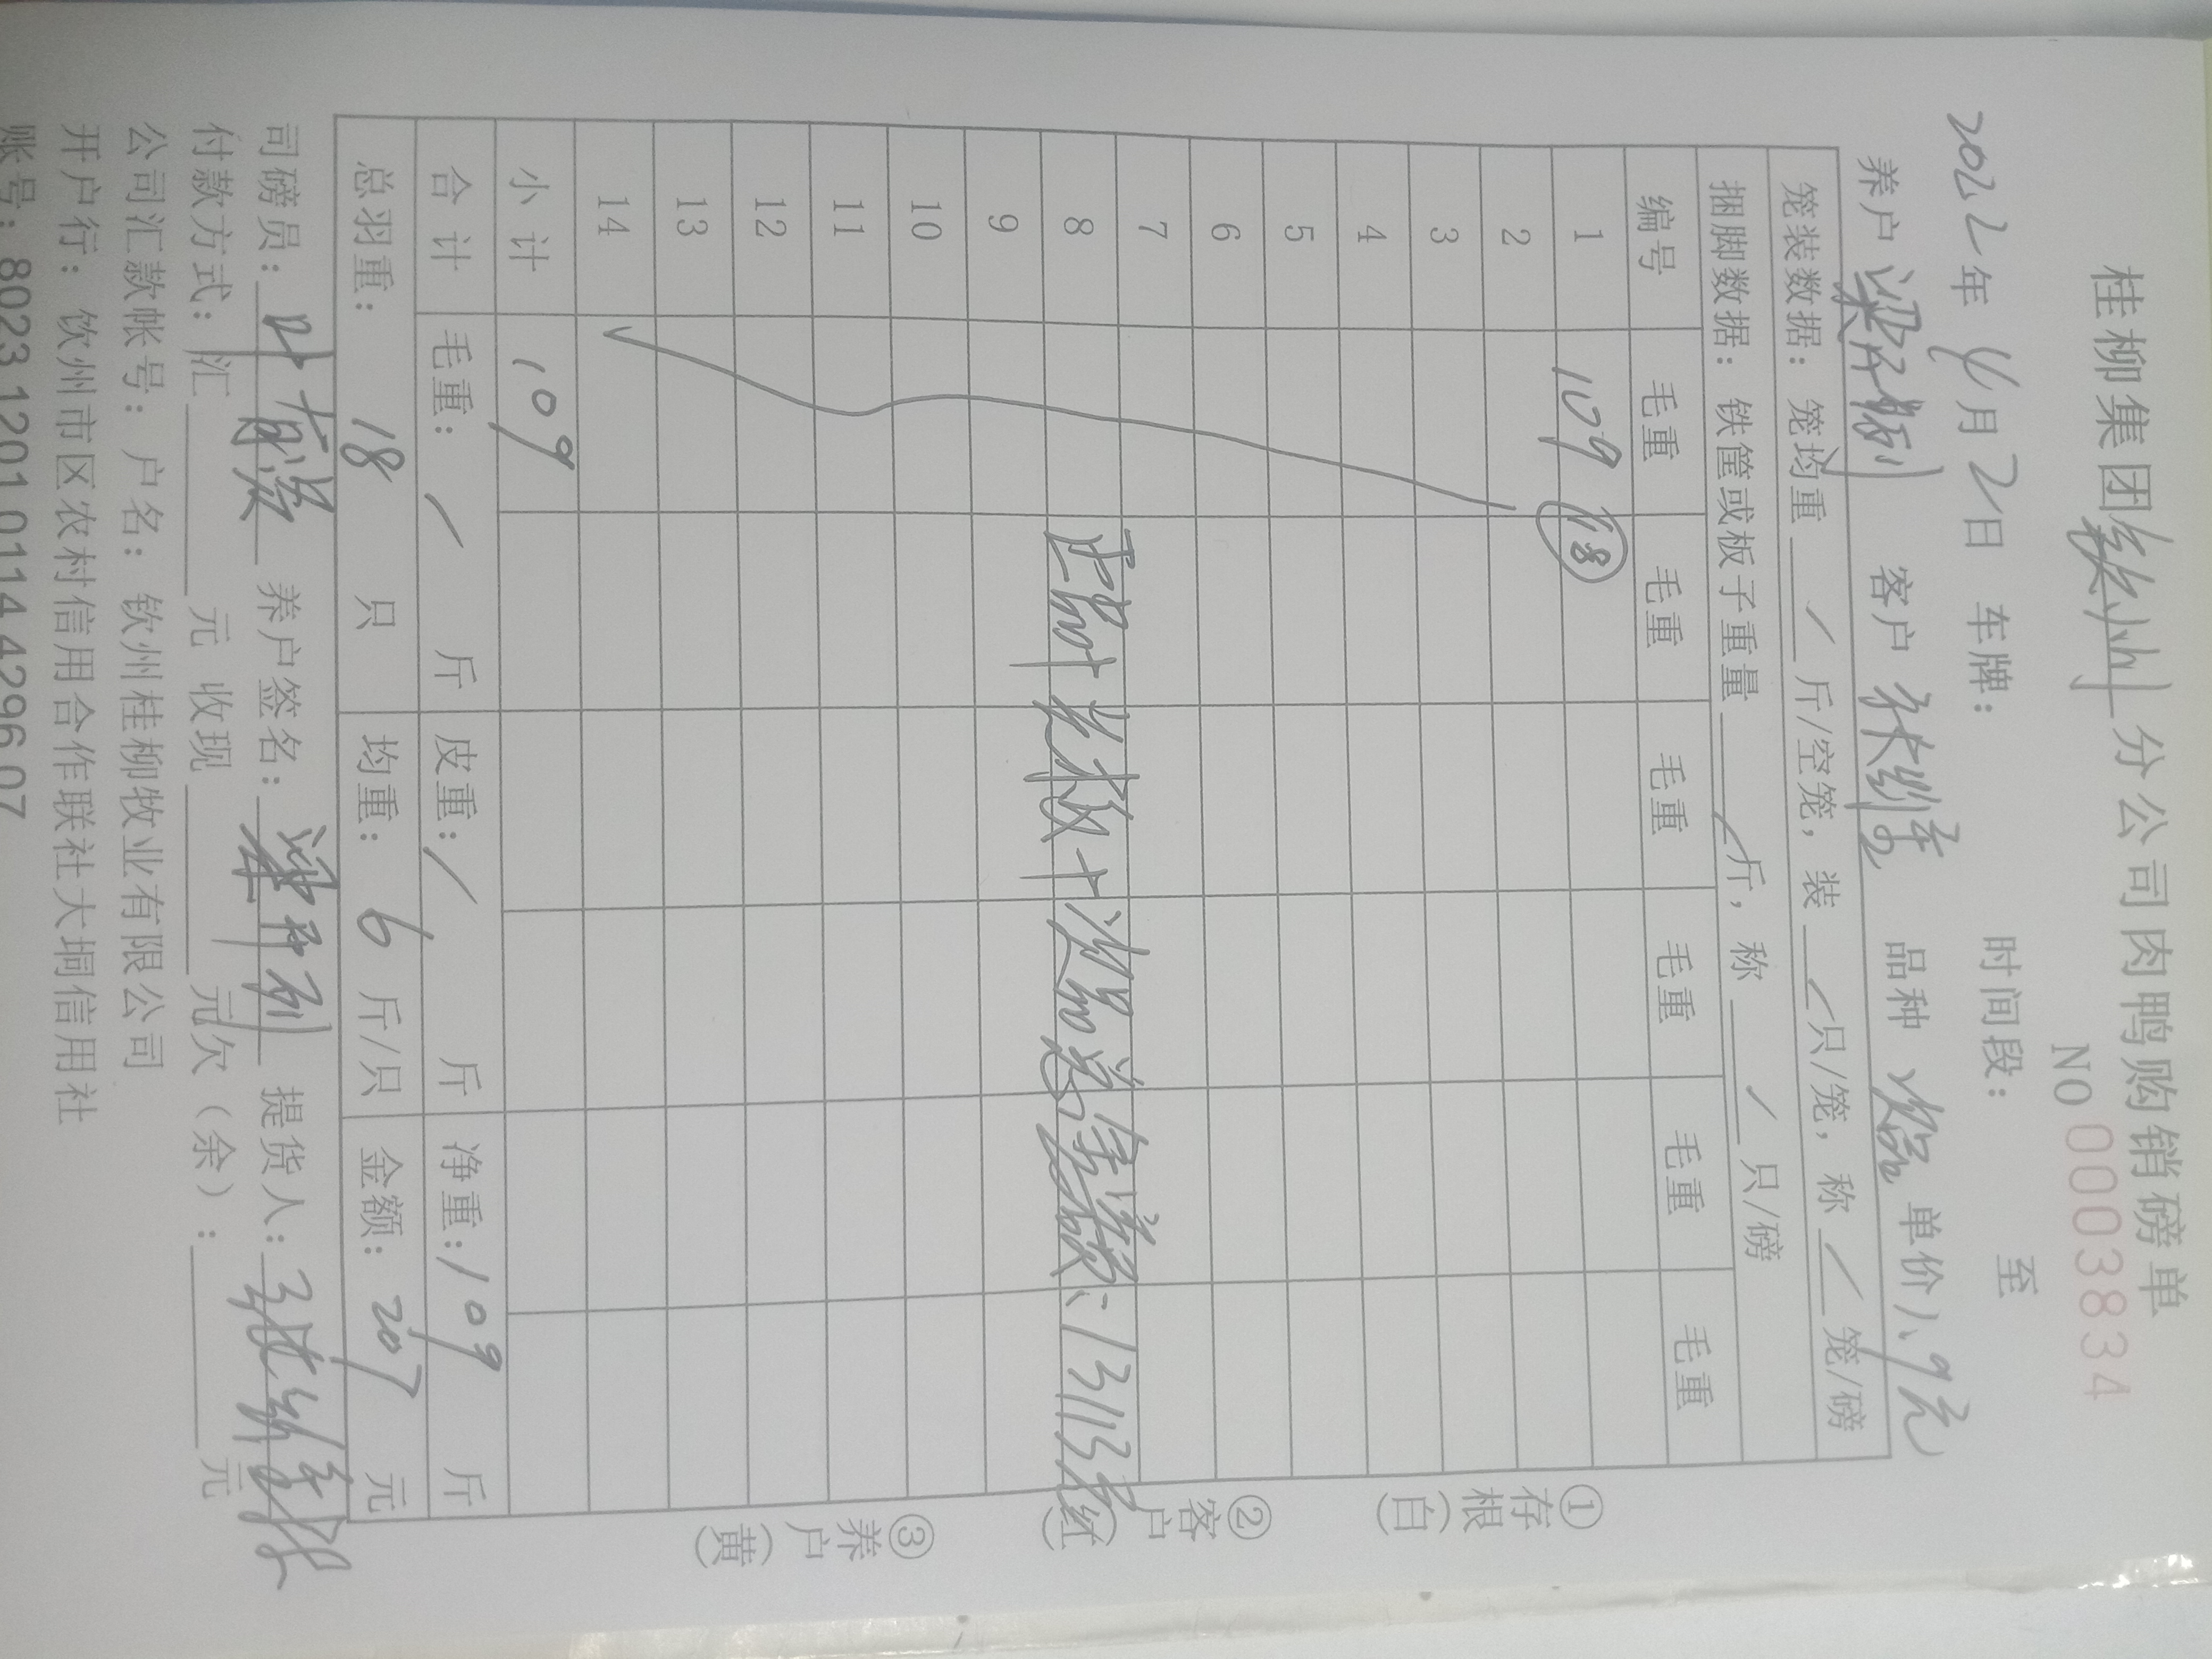 桂柳集团钦州分公司肉鸭购销磅单
NO 00038834
2022年4月2日 车牌： 时间段： 至
养户 梁 客户 张 品种 单价1.9元
笼装数据：笼均重 / 斤/空笼，装 / 只/笼，称 / 笼/磅
捆脚数据：铁筐或板子重量 / 斤，称 / 只/磅
编号 毛重 毛重 毛重 毛重 毛重 毛重
1 109 18
2
3
4
5
6
7
8
9
10
11
12
13
14
小计 109
合计 毛重：/ 斤 皮重：/ 斤 净重：109 斤
总羽重：18 只 均重：6 斤/只 金额：207 元
司磅员：叶 养户签名：梁 提货人：
付款方式：汇 元 收现 元欠（余）： 元
公司汇款帐号：户名：钦州桂柳牧业有限公司
开户行：钦州市区农村信用合作联社大垌信用社
账号：8023 1201 0114 4296 07
①存根（白）
②客户（红）
③养户（黄）